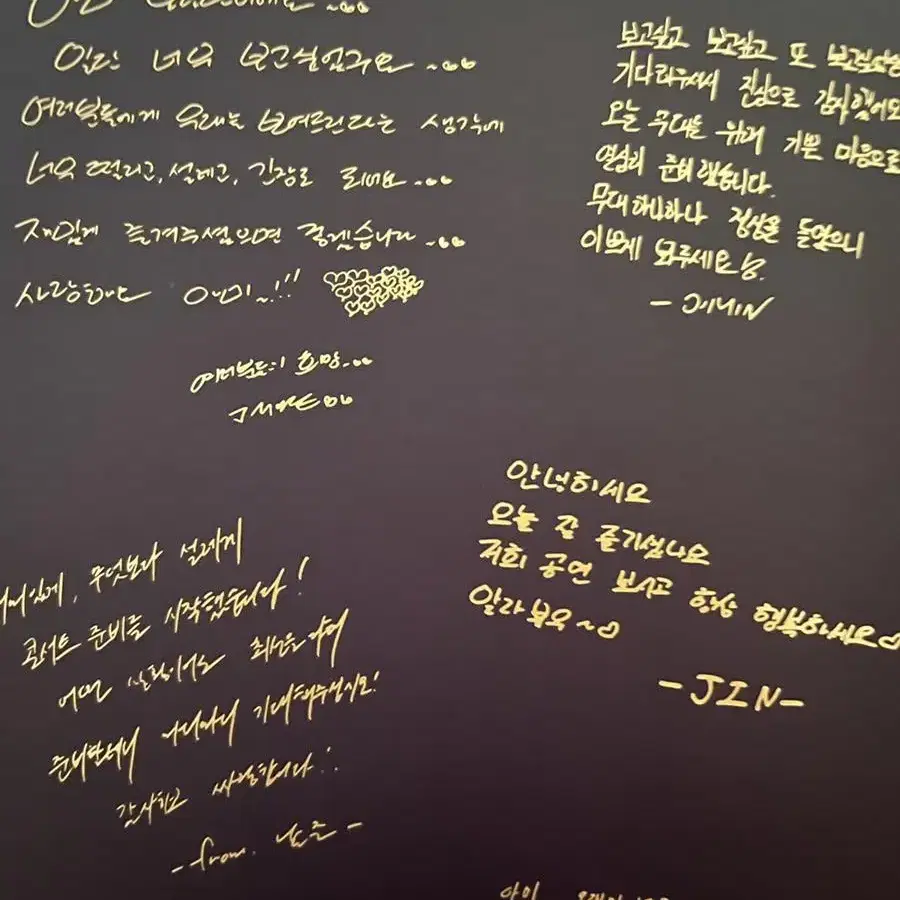 일단 너무 보고싶었구요 ~..
여러분들에게 무대를 보여드린다는 생각에
너무 떨리고, 설레고, 긴장도 되네요 ...
재밌게 즐겨주셨으면 좋겠습니다 ...
사랑한다 아미~!!!
여러분들의 희망...
JHOPE
보고싶고 보고싶고 또
기다려주셔서 진심으로 감사했어요
오늘 무대를 위해 기쁜 마음으로
열심히 준비 했습니다.
무대 하나하나 정성을 들였으니
이쁘게 봐주세요
- JIMIN
재미있게, 무엇보다 설레게
콘서트 준비를 시작했습니다!
어떤 최선을 다해
준비한테니 기대해주십시오!
감사하고 싸랑합니다
- from. 남준 -
안녕하세요
오늘 잘 즐기셨나요
저희 공연 보시고 항상 행복하세요♡
알라뷰요~♡
- JIN -
아미